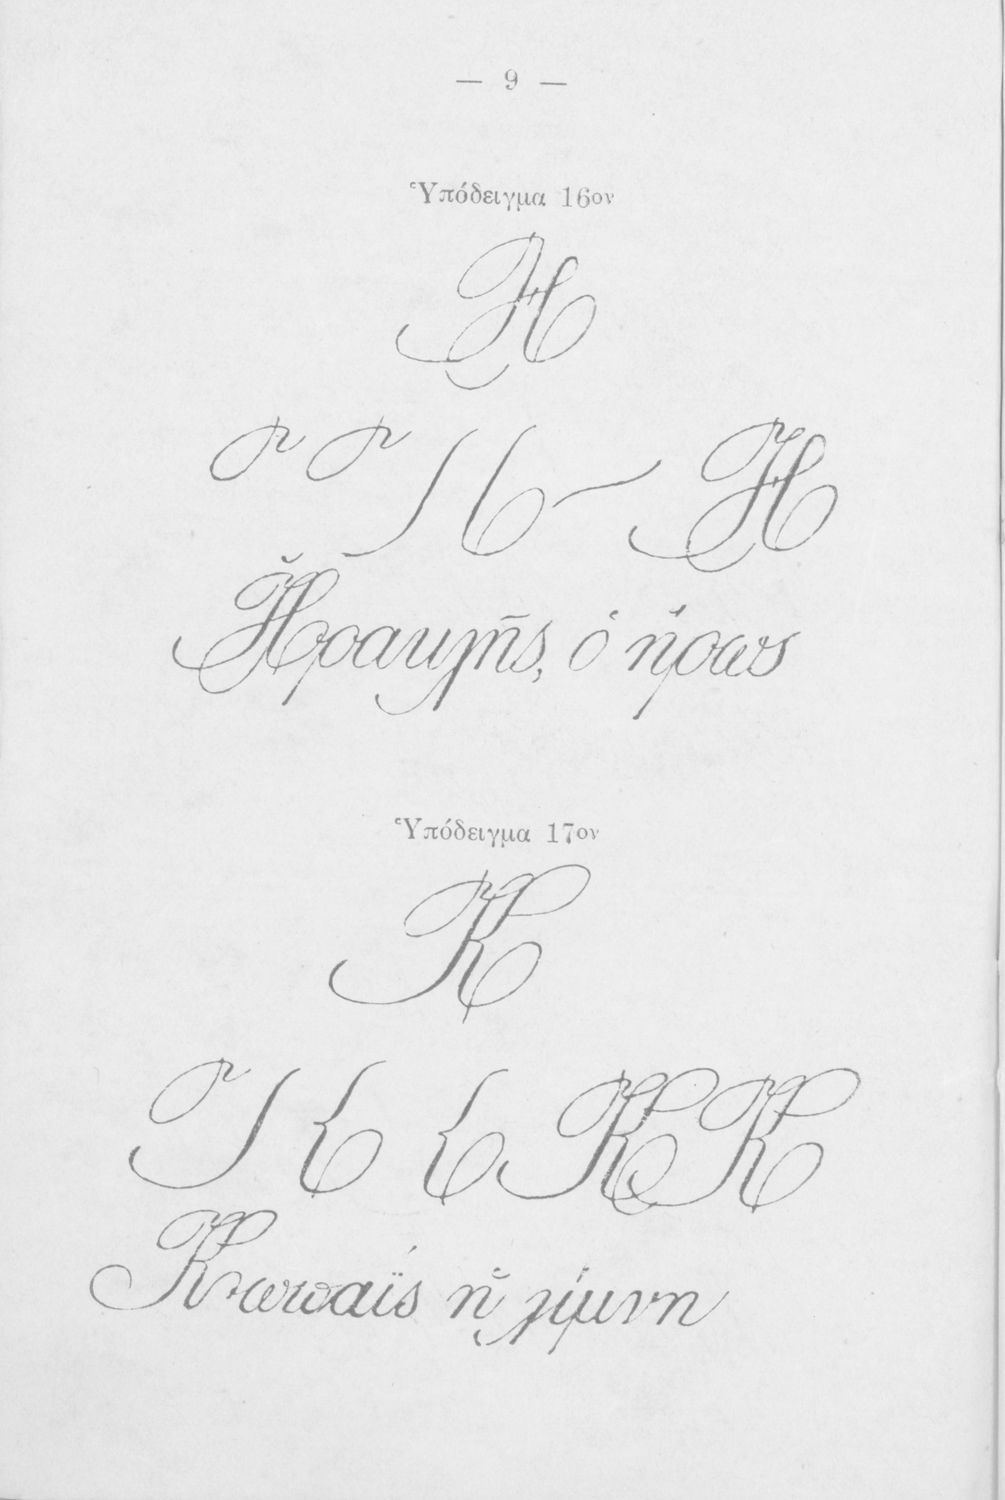 — 9 —
Ὑπόδειγμα 16ον
Η
Η
Ἡρακλῆς, ὁ ἥρως
Ὑπόδειγμα 17ον
Κ
Κ Κ
Κωπαΐς ἡ λίμνη